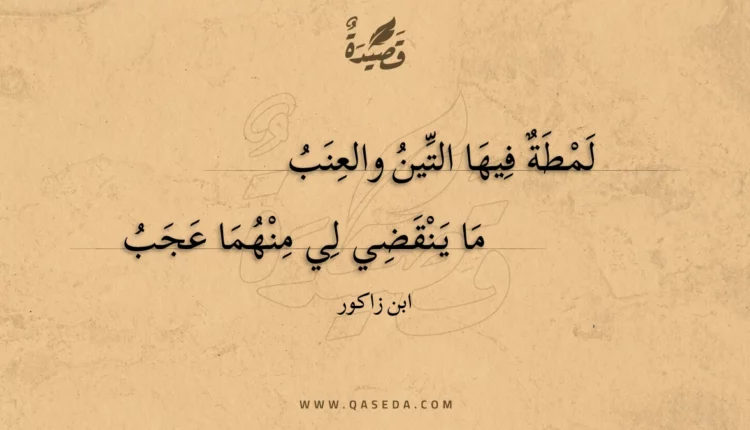 قَصِيدَةٌ
لَمْطَةٌ فِيهَا التِّينُ والعِنَبُ
مَا يَنْقَضِي لِي مِنْهُمَا عَجَبُ
ابن زاكور
WWW.QASEDA.COM